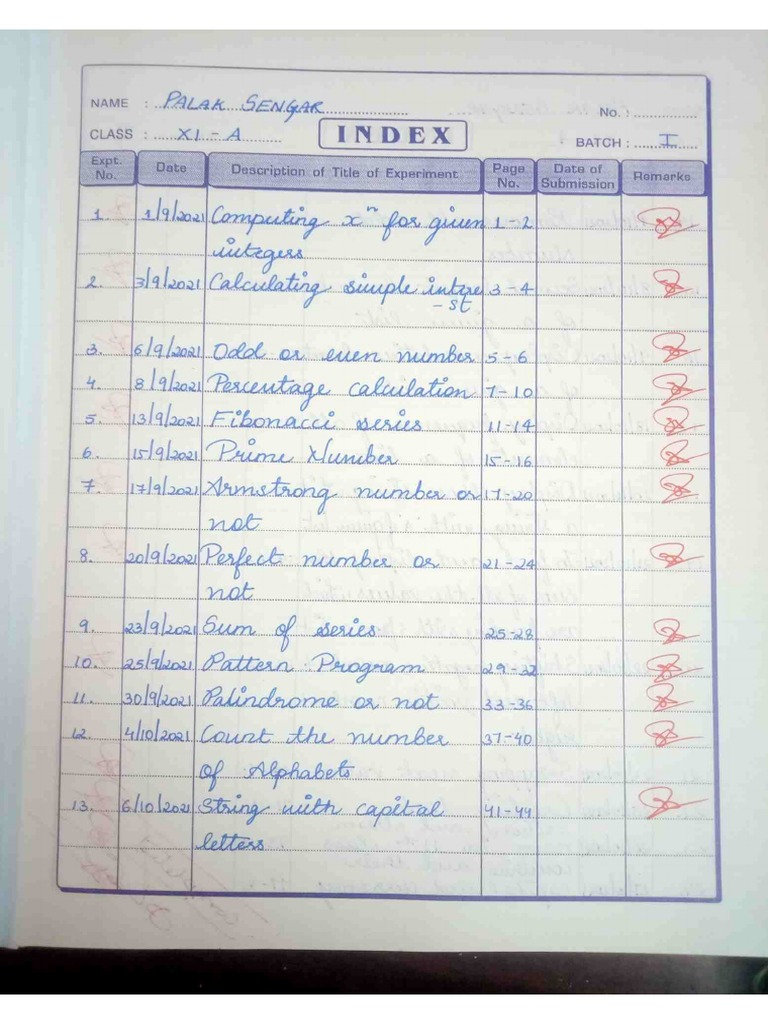 NAME : PALAK SENGAR No. :
CLASS : XI - A INDEX BATCH : I
Expt. No. Date Description of Title of Experiment Page No. Date of Submission Remarks
1. 1/9/2021 Computing xⁿ for given 1-2
integers
2. 3/9/2021 Calculating simple intre 3-4
-st
3. 6/9/2021 Odd or even number 5-6
4. 8/9/2021 Percentage calculation 7-10
5. 13/9/2021 Fibonacci series 11-14
6. 15/9/2021 Prime Number 15-16
7. 17/9/2021 Armstrong number or 17-20
not
8. 20/9/2021 Perfect number or 21-24
not
9. 23/9/2021 Sum of series 25-28
10. 25/9/2021 Pattern Program 29-32
11. 30/9/2021 Palindrome or not 33-36
12. 4/10/2021 Count the number 37-40
of Alphabets
13. 6/10/2021 String with capital
letters